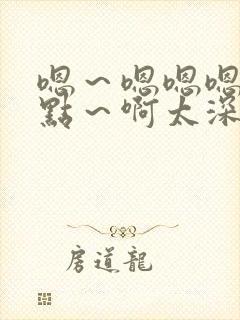 嗯~嗯嗯嗯
點~啊太深
房道龍